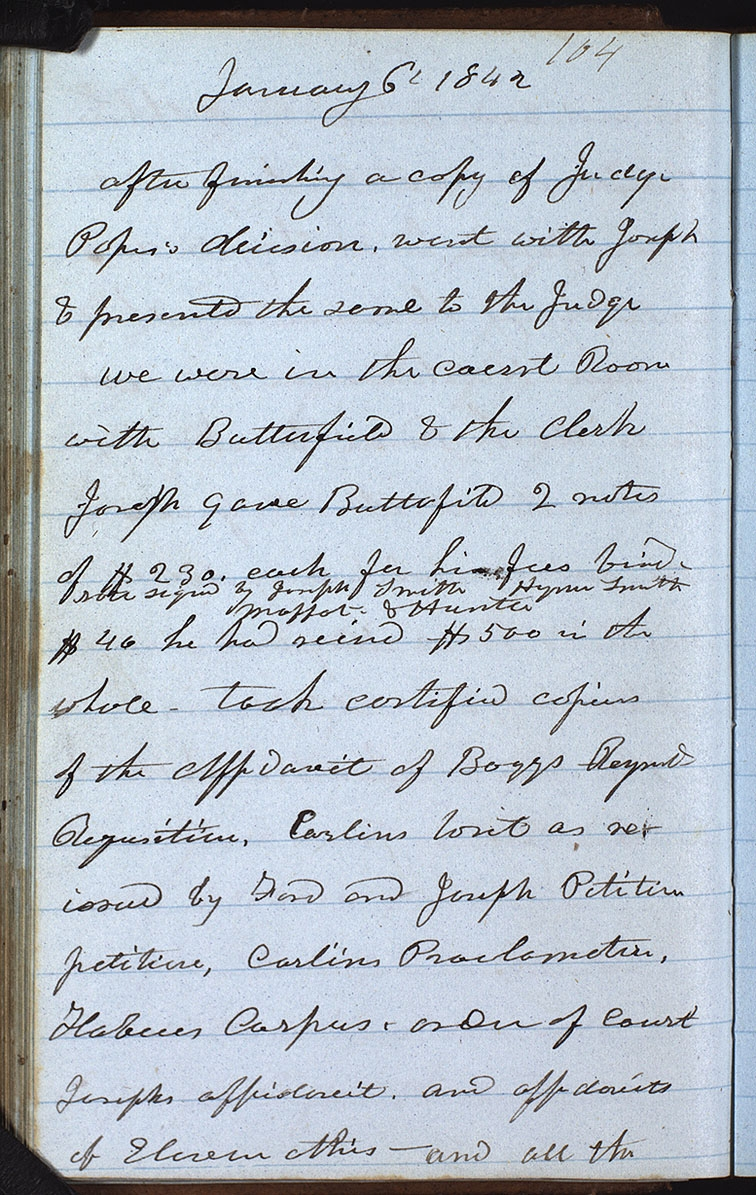 104
January 6t 1842
after finishing a copy of Judge
Popes decision. went with Joseph
& presented the same to the Judge
we were in the court Room
with Butterfield & the Clerk
Joseph gave Butterfield 2 notes
of $230. each for his fees
signed by Joseph Smith Hyrum Smith
Moffat & Hunter
$40 he had received $500 in the
whole - took certified copies
of the affidavit of Boggs Reynolds
Requisition, Carlins writ as re-
issued by Ford and Joseph Petition
petition, Carlins Proclamation,
Habeus Corpus. order of court
Josephs affidavit. and affidavits
of Eleven others - and all the